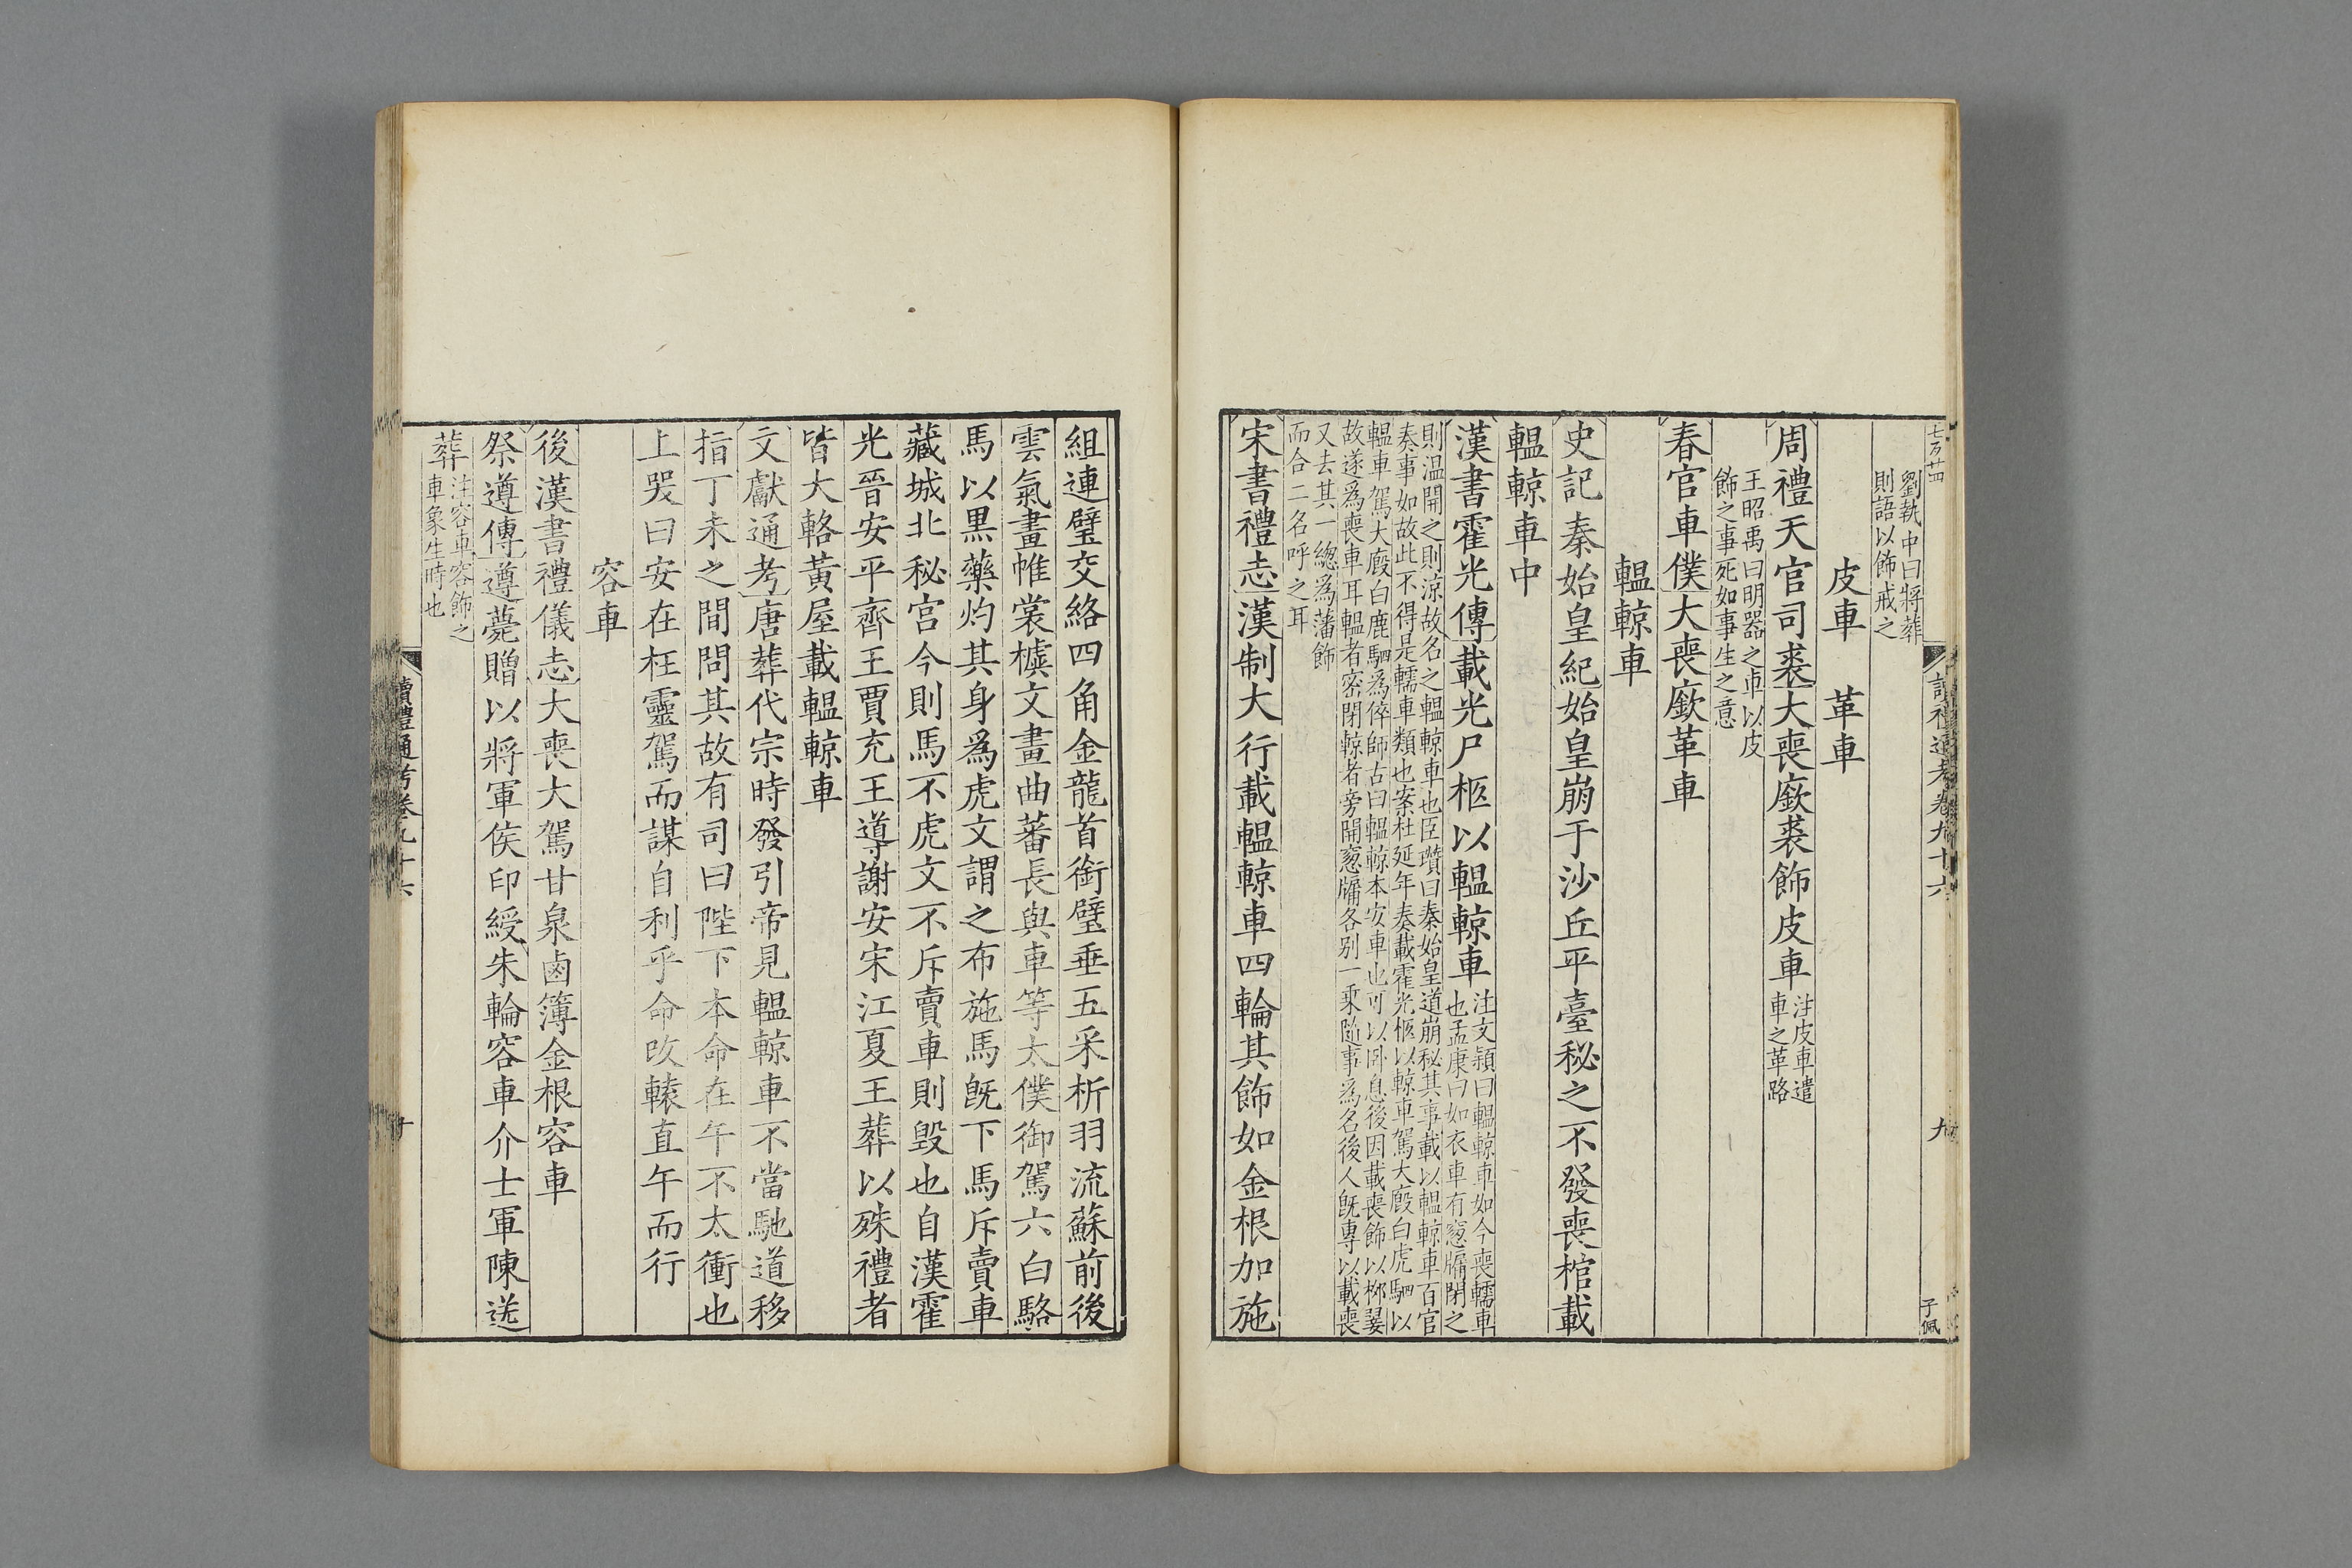 七百廿四
讀禮通考卷九十六
九
子佩
劉執中曰將葬
則語以飾戒之
皮車　革車
周禮天官司裘大喪廞裘飾皮車
注皮車遣
車之革路
王昭禹曰明器之車以皮
飾之事死如事生之意
春官車僕大喪廞革車
轀輬車
史記秦始皇紀始皇崩于沙丘平臺秘之不發喪棺載
轀輬車中
漢書霍光傳載光尸柩以轀輬車
注文穎曰轀輬車如今喪轜車
也孟康曰如衣車有窻牖閉之
則温開之則涼故名之轀輬車也臣瓚曰秦始皇道崩秘其事載以轀輬車百官
奏事如故此不得是轜車類也案杜延年奏載霍光柩以輬車駕大廄白虎駟以
轀車駕大廄白鹿駟為倅師古曰轀輬本安車也可以卧息後因載喪飾以柳翣
故遂為喪車耳轀者密閉輬者旁開窻牖各别一乘隨事為名後人旣專以載喪
又去其一總為藩飾
而合二名呼之耳
宋書禮志漢制大行載轀輬車四輪其飾如金根加施
組連璧交絡四角金龍首銜璧垂五采析羽流蘇前後
雲氣畫帷裳櫖文畫曲蕃長與車等太僕御駕六白駱
馬以黒藥灼其身為虎文謂之布施馬旣下馬斥賣車
藏城北秘宫今則馬不虎文不斥賣車則毁也自漢霍
光晉安平齊王賈充王導謝安宋江夏王葬以殊禮者
皆大輅黃屋載轀輬車
文獻通考唐葬代宗時發引帝見轀輬車不當馳道移
指丁未之間問其故有司曰陛下本命在午不太衝也
上哭曰安在枉靈駕而謀自利乎命改轅直午而行
容車
後漢書禮儀志大喪大駕甘泉鹵簿金根容車
祭遵傳遵薨贈以將軍侯印綬朱輪容車介士軍陳送
葬
注容車容飾之
車象生時也
讀禮通考卷九十六
十